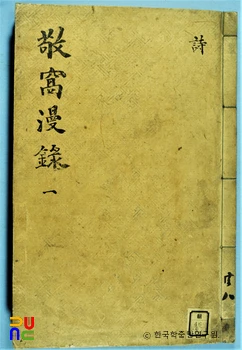 敬窩漫錄
一
詩
共八
ⓒ 한국학중앙연구원